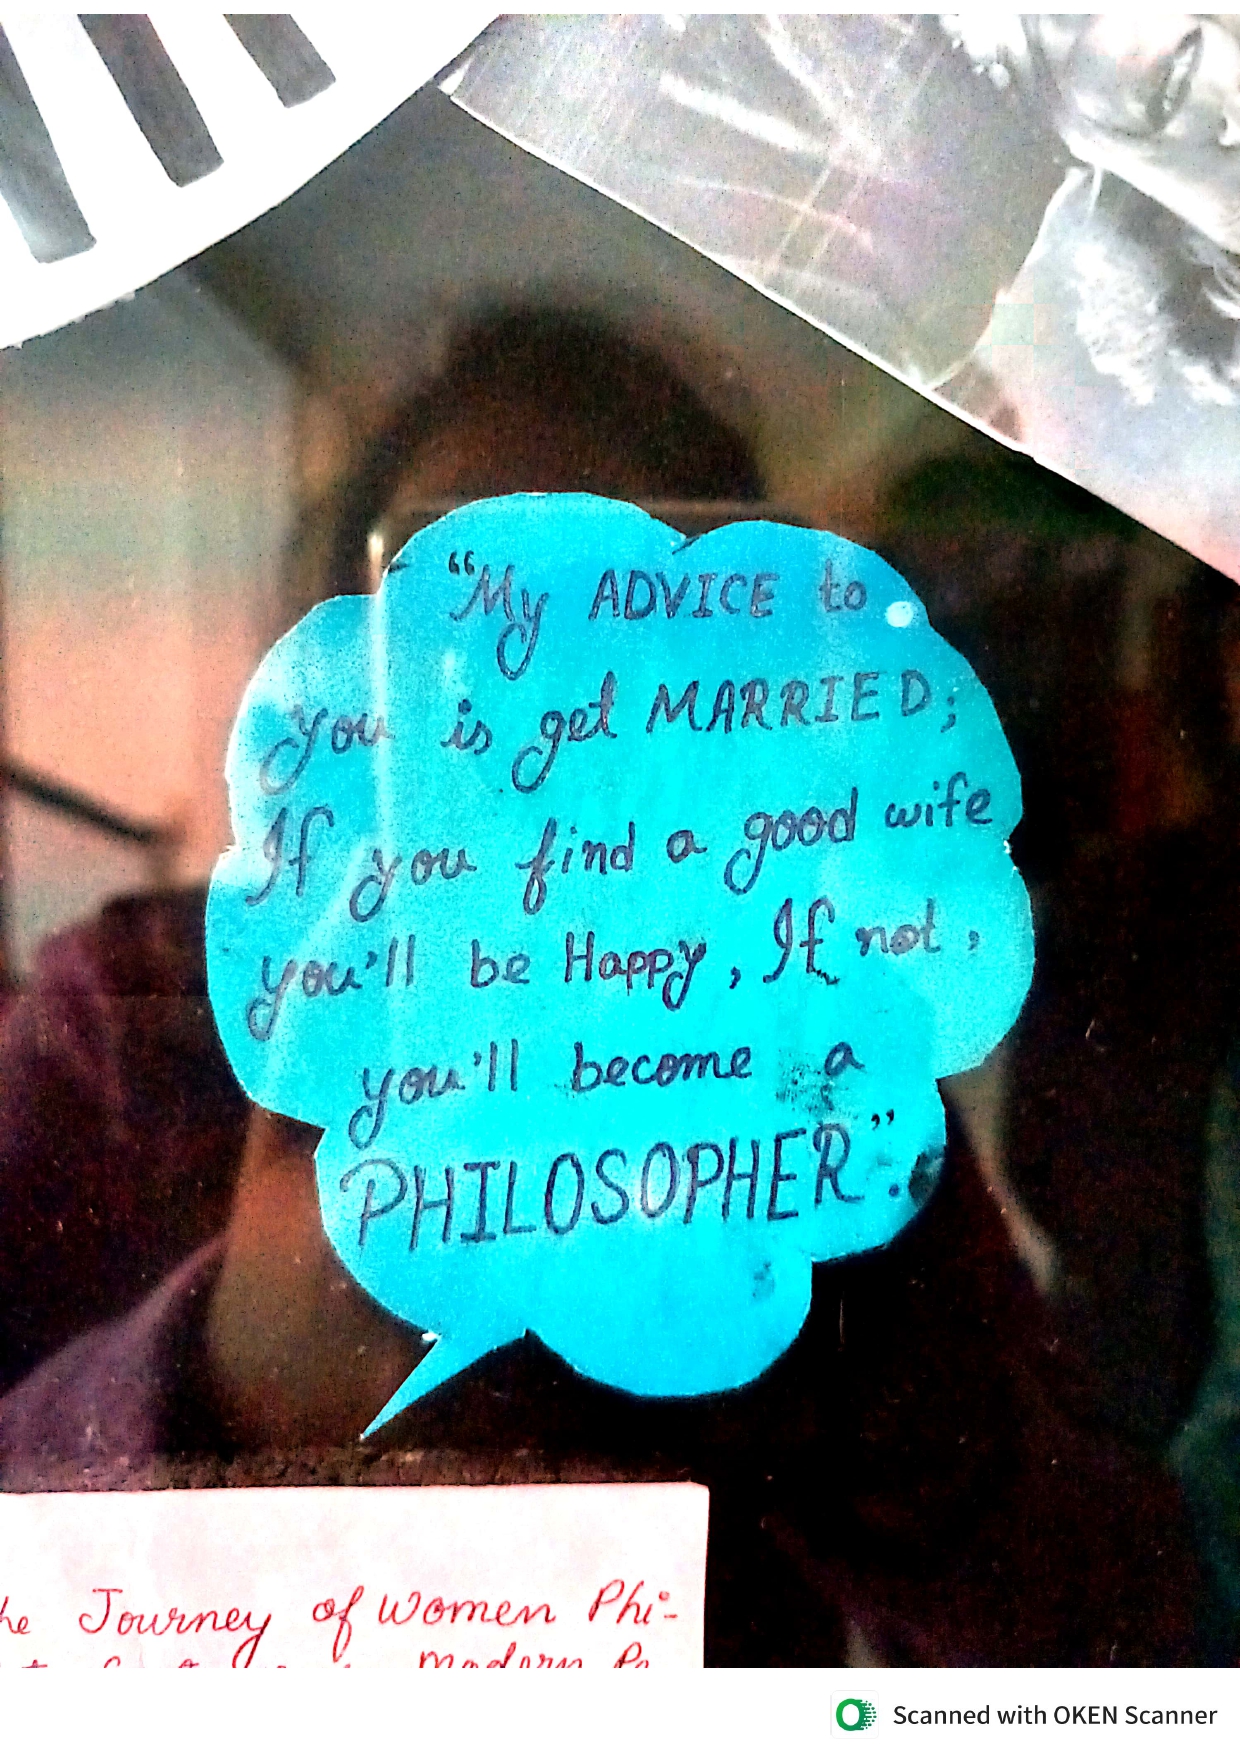 “My ADVICE to
you is get MARRIED;
If you find a good wife
you'll be Happy, If not,
you'll become a
PHILOSOPHER”.
he Journey of women Phi-
modern Pe
Scanned with OKEN Scanner